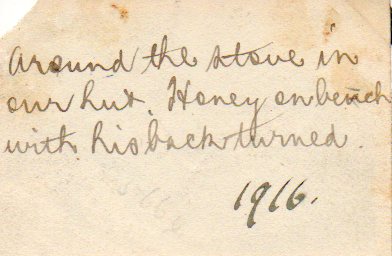 Around the stove in
our hut. Honey on bench
with his back turned.
1916.